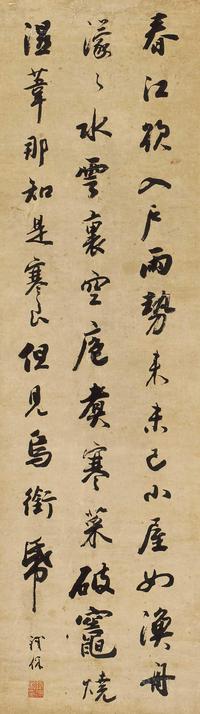 春江欲入戶雨勢來未已小屋如漁舟
濛〻水雲裏空庖煮寒菜破竈燒
濕葦那知是寒食但見烏銜帋